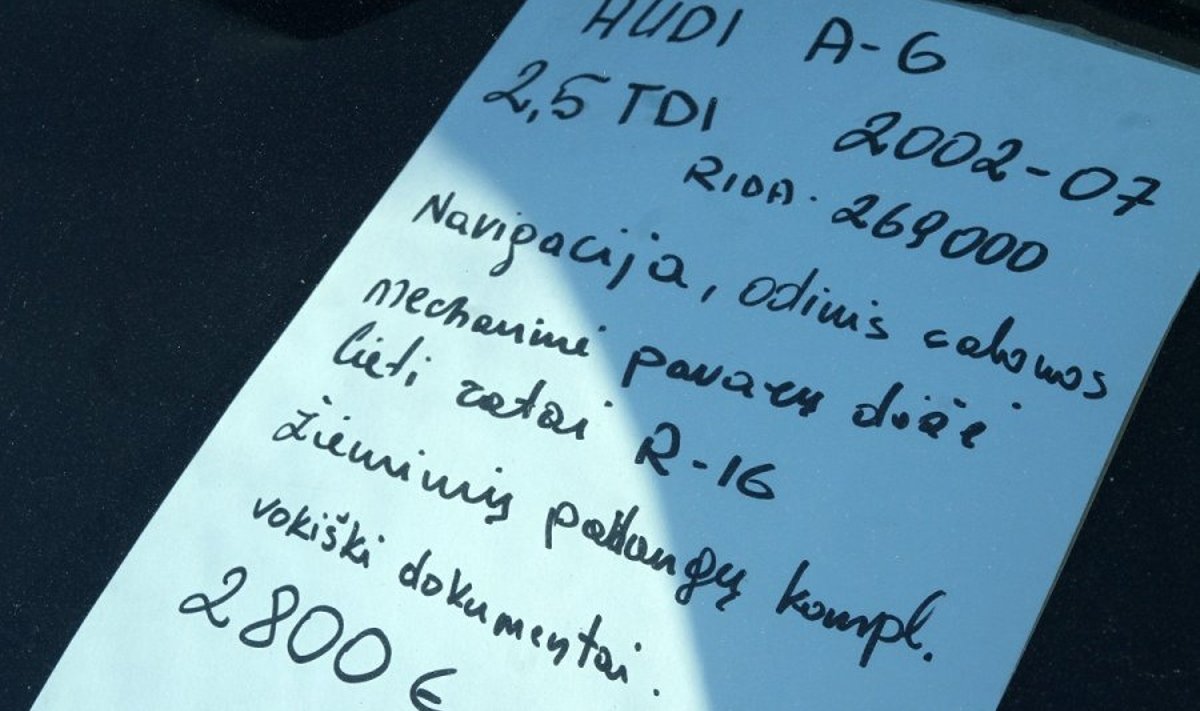 AUDI A-6
2,5 TDI 2002-07
RIDA. 269000
Navigacija, odinis salonas
mechaninė pavarų dėžė
lieti ratai R-16
žieminių padangų kompl.
vokiški dokumentai.
2800 €